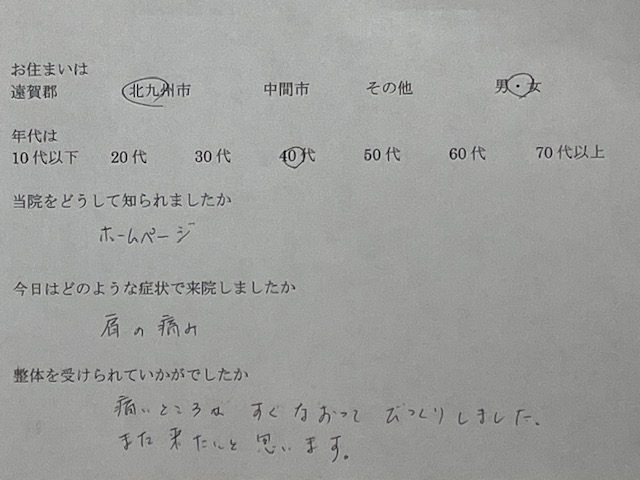 お住まいは
遠賀郡 北九州市 中間市 その他 男・女
年代は
10代以下 20代 30代 40代 50代 60代 70代以上
当院をどうして知られましたか
ホームページ
今日はどのような症状で来院しましたか
肩の痛み
整体を受けられていかがでしたか
痛いところが すぐなおって びっくりしました。
また来たいと思います。